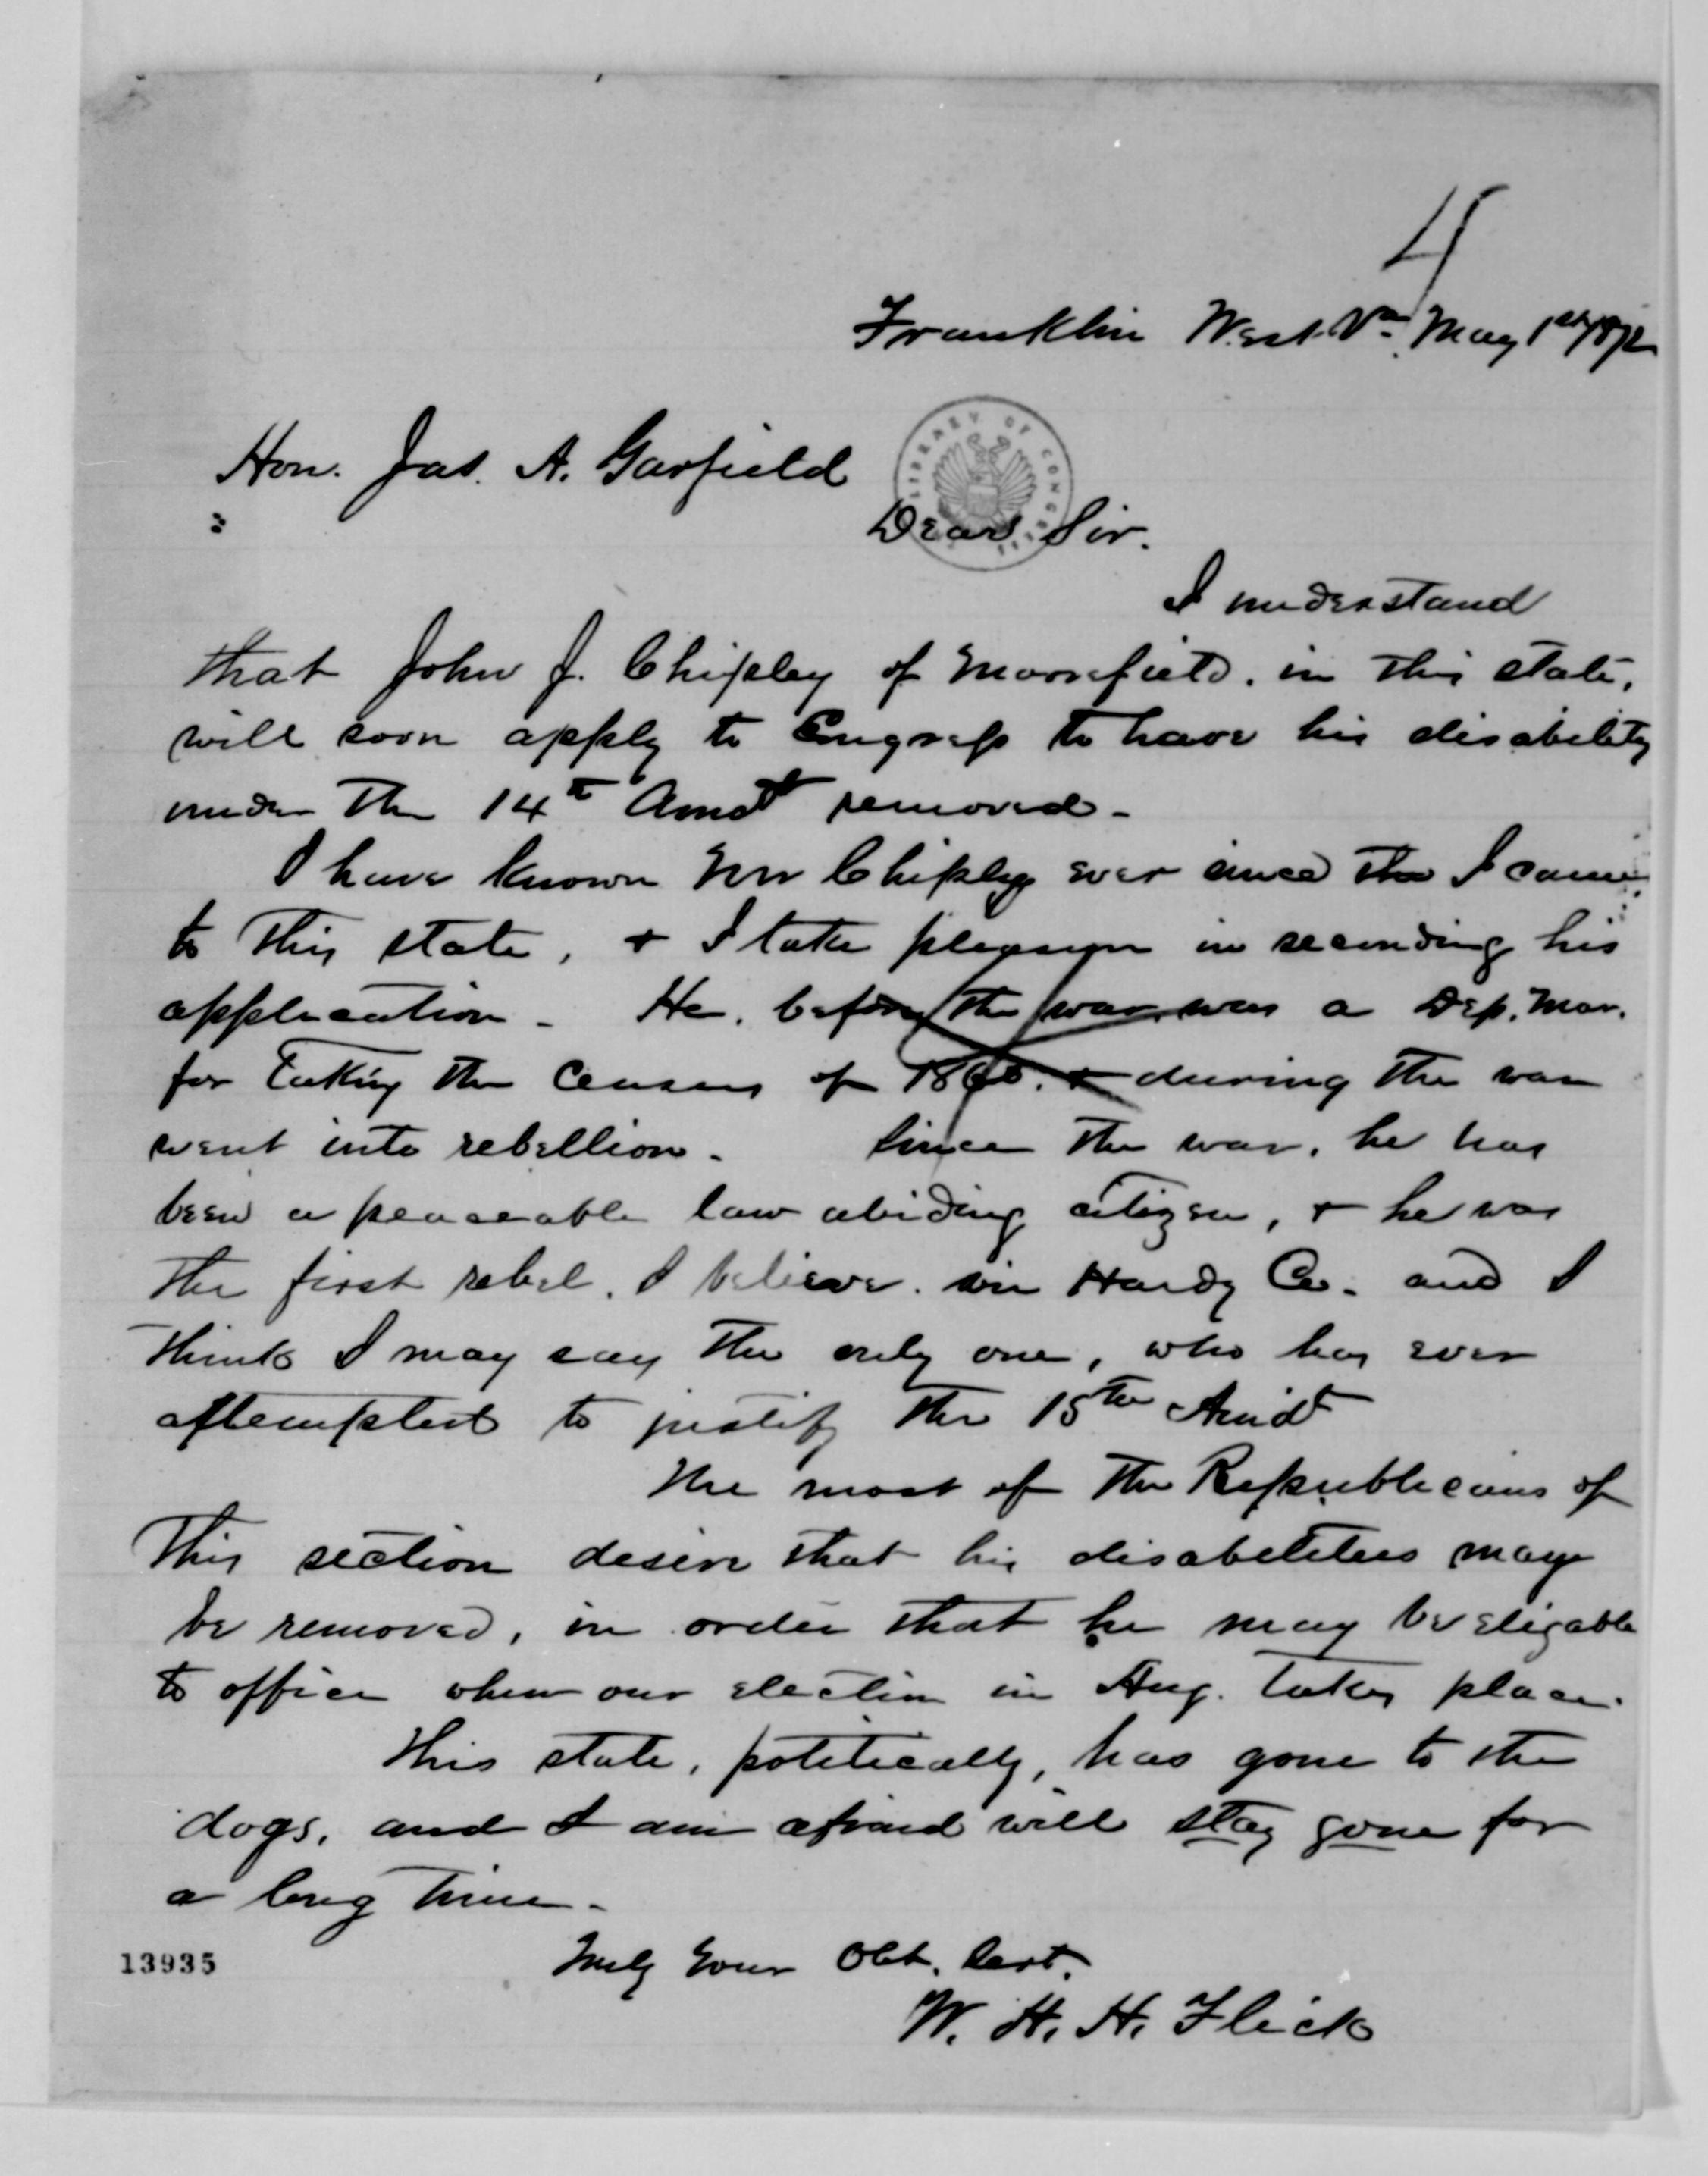 4
Franklin West Va. May 1st/872
LIBRARY OF CONGRESS
Hon. Jas. A. Garfield
Dear Sir.
I understand
that John J. Chipley of Moorefield. in this state,
will soon apply to Congress to have his disability
under the 14th Amdt removed -
I have known Mr Chipley ever since I came
to this state, + I take pleasure in seconding his
application - He, before the war, was a Dep. Mar.
for taking the Census of 1860. + during the war
went into rebellion - Since the war, he has
been a peaceable law abiding citizen, + he was
the first rebel, I believe, in Hardy Co. and I
think I may say the only one, who has ever
attempted to justify the 15th Amdt
The most of the Republicans of
this section desire that his disabilities may
be removed, in order that he may be eligable
to office when our election in Aug. takes place.
This state, politically, has gone to the
dogs, and I am afraid will stay gone for
a long time -
Truly Your Obt. Servt.
W. H. H. Flick
13935